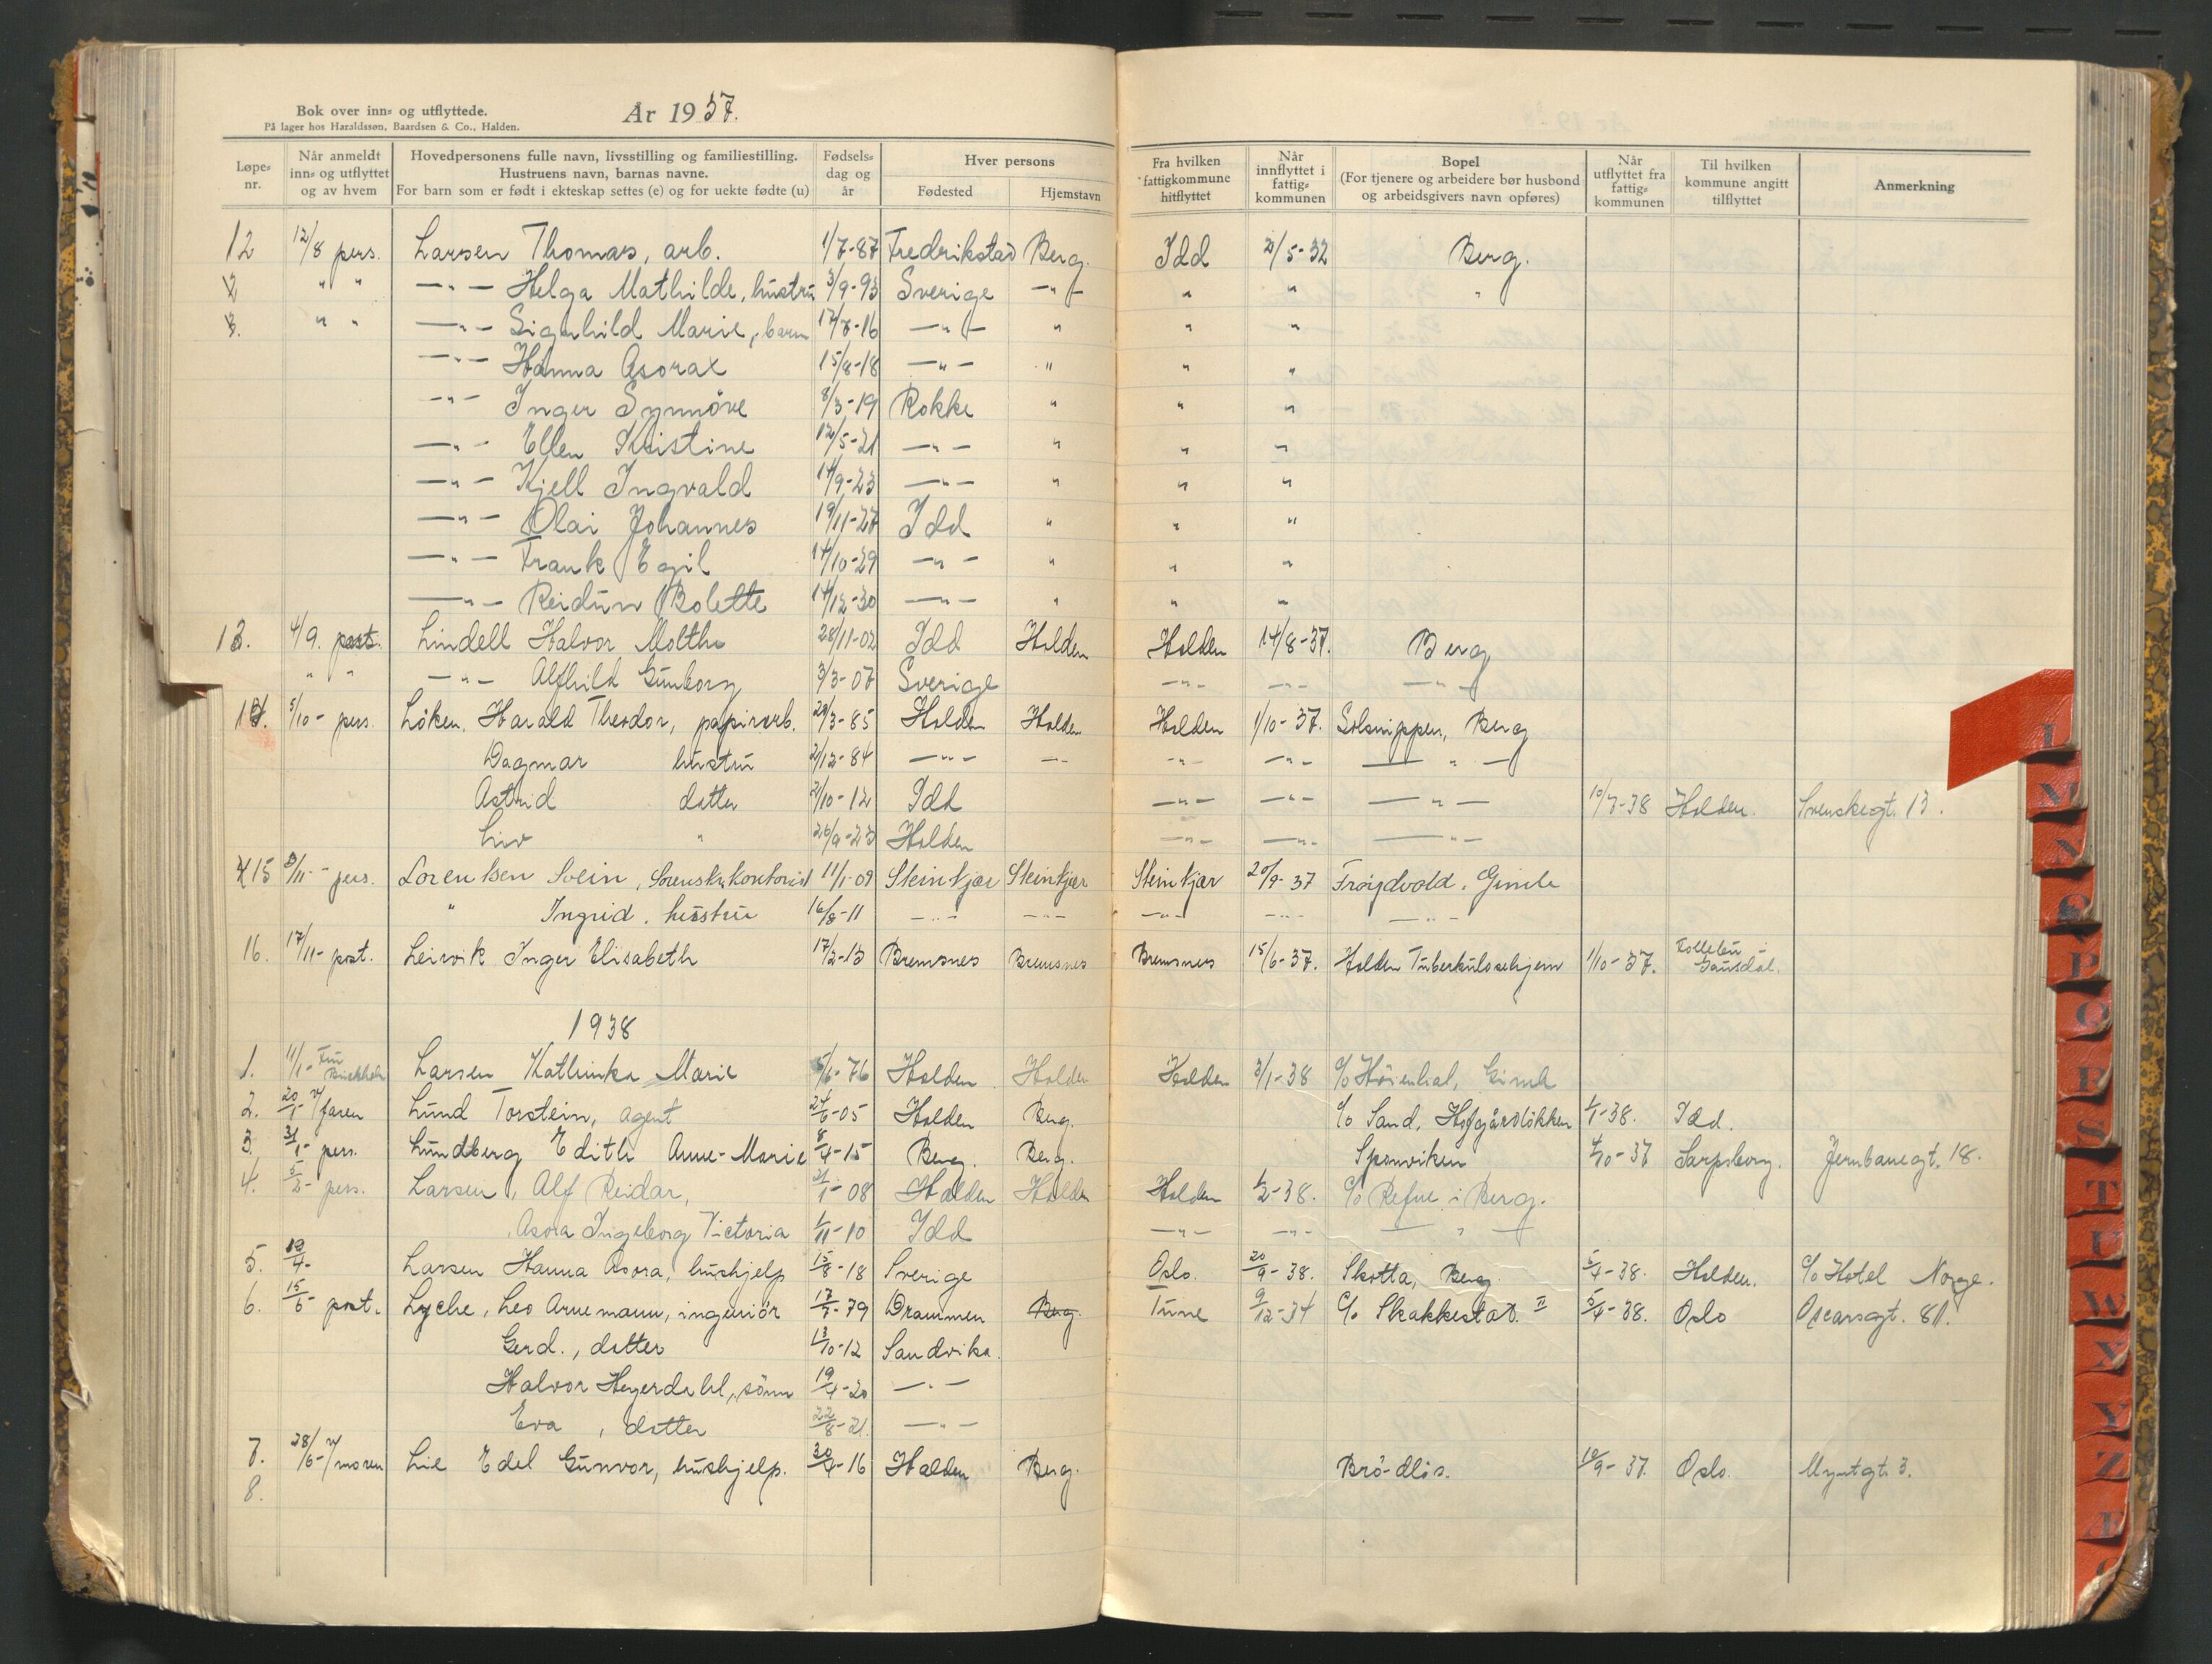 Bok over inn= og utflyttede.
På lager hos Haraldssøn, Baardsen & Co., Halden.
År 1937.
Løpe= nr. | Når anmeldt inn= og utflyttet og av hvem | Hovedpersonens fulle navn, livsstilling og familiestilling. Hustruens navn, barnas navne. For barn som er født i ekteskap settes (e) og for uekte fødte (u) | Fødsels= dag og år | Hver persons Fødested | Hjemstavn | Fra hvilken fattigkommune hitflyttet | Når innflyttet i fattig= kommunen | Bopel (For tjenere og arbeidere bør husbond og arbeidsgivers navn opføres) | Når utflyttet fra fattig= kommunen | Til hvilken kommune angitt tilflyttet | Anmerkning
12 12/8 pers. Larsen Thomas, arb. 1/7-87 Fredrikstad Berg. Idd 2/5-32 Berg.
" " —"— Helga Mathilde, hustru 3/9-93 Sverige —"— " " "
" " —"— Signhild Marie, barn 17/7-16 —"— " " "
—"— Hanna Asora 15/8-18 —"— " " "
—"— Inger Synnöve 8/3-19 Rokke " " "
—"— Ellen Kristine 12/5-21 —"— " " "
—"— Kjell Ingvald 14/9-23 —"— " " "
—"— Olai Johannes 19/11-27 Idd " " "
—"— Frank Egil 14/10-29 —"— " " "
—"— Reidun Bolette 14/12-30 —"— " " "
13. 4/9. post. Lindell Halvor Molthe 28/11-02 Idd Halden Halden 14/8-37. Berg
" " —"— Alfhild Gunborg 3/3-07 Sverige —"— —"— —"—
14. 5/10- pers. Löken, Harald Theodor, papirarb. 29/3-85 Halden Halden Halden 1/10-37. Solsnippen, Berg
Dagmar hustru 2/12-84 —"— —"— —"— —"— —"—
Astrid datter 2/10-12 Idd —"— —"— —"— 10/7-38 Halden. Svenskegt. 13.
Liv " 26/9-23 Halden —"— —"— —"—
15 3/11- pers. Lorentsen Svein, Sorenskr.kontorist 11/1-09 Steinkjær Steinkjær Steinkjær 20/9-37 Frøydvold, Gimle
" Ingrid, hustru 16/8-11 —"— —"— —"— —"— —"—
16. 17/11- post. Leirvik Inger Elisabeth 17/2-13 Bremsnes Bremsnes Bremsnes 15/6-37. Halden Tuberkulosehjem 1/10-37. Gausdal.
1938
1. 11/1- Fru Larsen Kathinka Marie 5/6-76 Halden Halden Halden 3/1-38 c/o Höienhal, Gimle
2. 20/1- v/faren Lund Torstein, agent 24/6-05 Halden Berg. c/o Sand, Hofgårdlökken 1/1-38. Idd.
3. 31/1- pers. Lundberg Edith Anne-Marie 8/4-15 Berg. Berg. Sponviken 4/10-37 Sarpsborg. Jernbanegt. 18.
4. 5/2- pers. Larsen, Alf Reidar, 21/1-08 Halden Halden Halden 1/2-38. c/o Refne i Berg.
Asora Ingeborg Victoria 1/11-10 Idd —"— —"— —"—
5. 19/4- Larsen Hanna Asora, hushjelp 15/8-18 Sverige Oslo. 20/9-38. Skotta, Berg. 5/4-38. Halden. c/o Hotel Norge.
6. 15/6- post. Lyche, Leo Arnemann, ingeniör 17/7-79 Drammen Berg. Tune 9/12-34 c/o Skakkestad II 5/4-38. Oslo Oscarsgt. 81.
Gerd., datter 13/10-12 Sandvika.
Halvor Heyerdahl, sönn 19/4-20 —"—
Eva, datter 22/8-21. —"—
7. 28/6- v/moren Lie Edel Gunvor, hushjelp. 30/4-16 Halden Berg. Brödlös. 10/9-37. Oslo. Myntgt. 3.
8.
L
P
Q
R
S
T
U
W
X
Y
Z
Æ